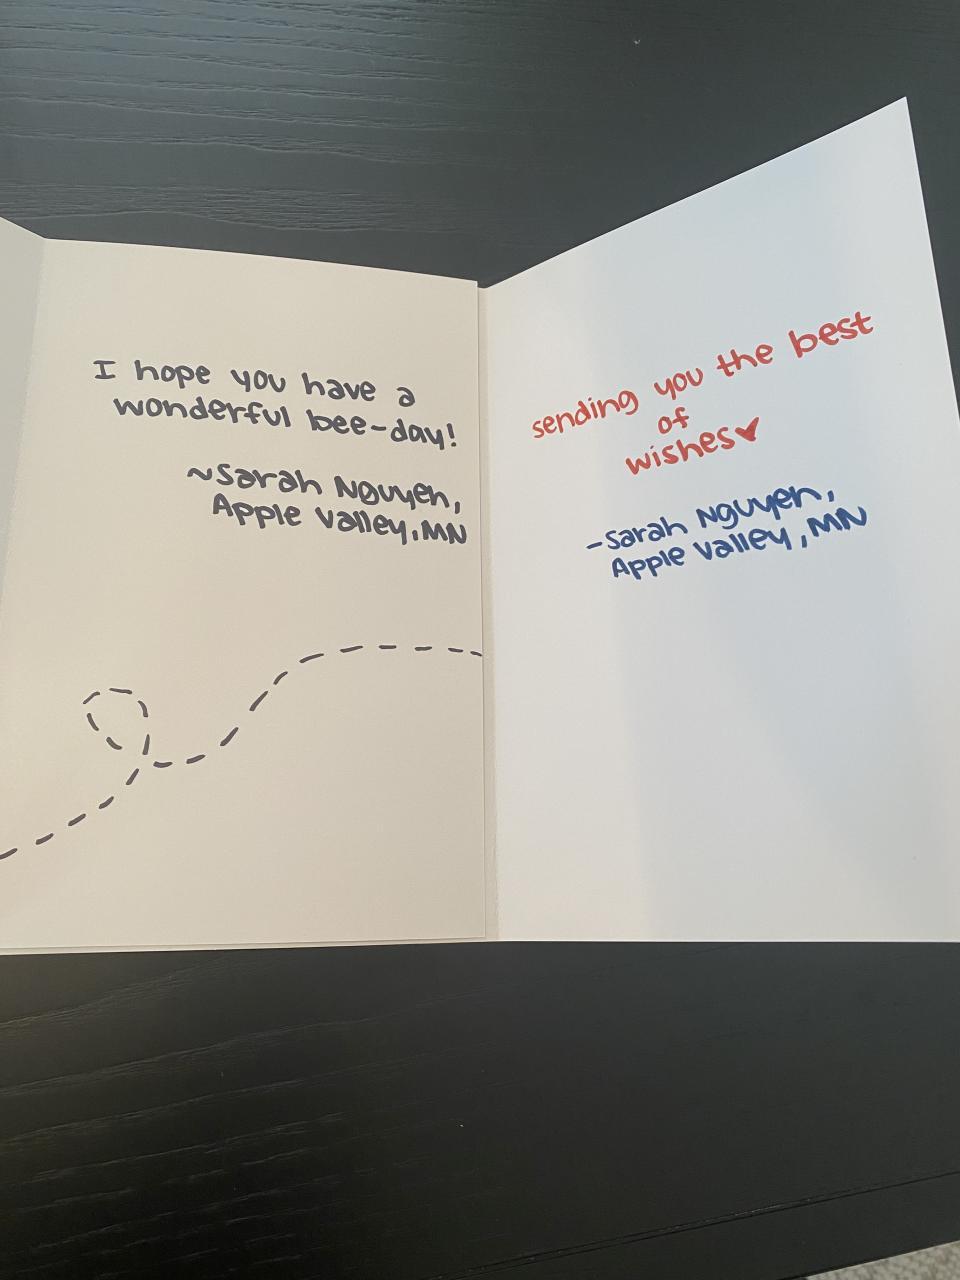 I hope you have a
wonderful bee-day!
~Sarah Nguyen,
Apple Valley, MN
sending you the best
of
wishes♥
-Sarah Nguyen,
Apple Valley, MN